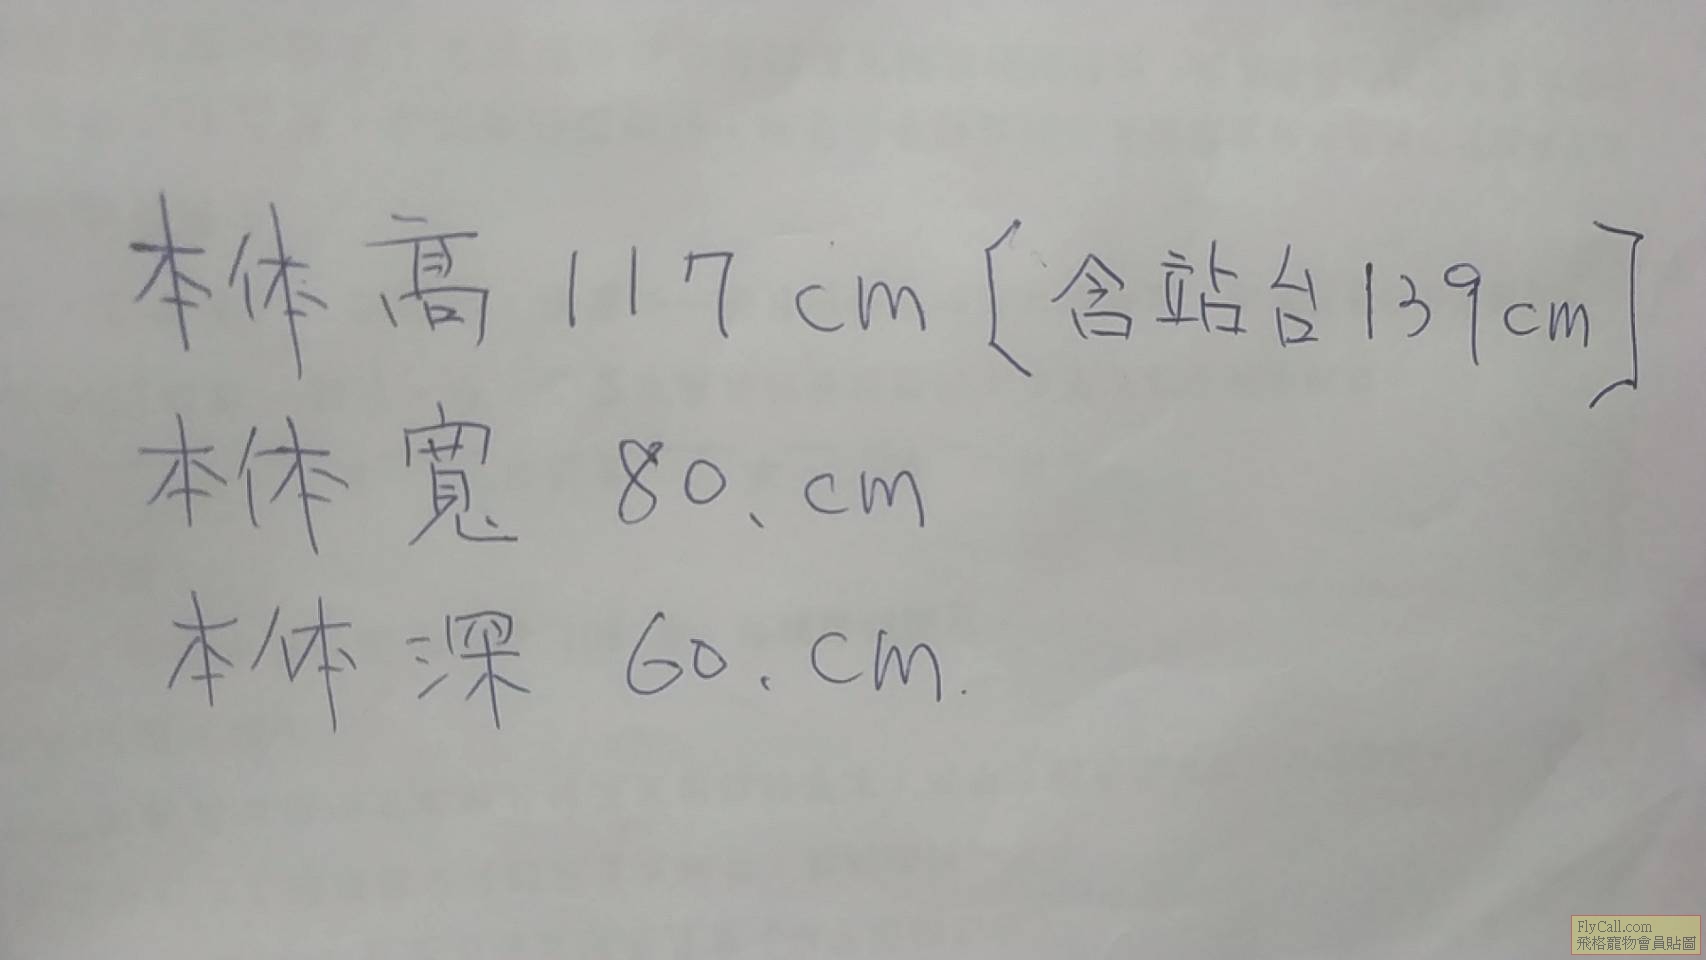 本体高 117 cm [含站台139cm]
本体寬 80、cm
本体深 60、cm.
FlyCall.com
飛格寵物會員貼圖